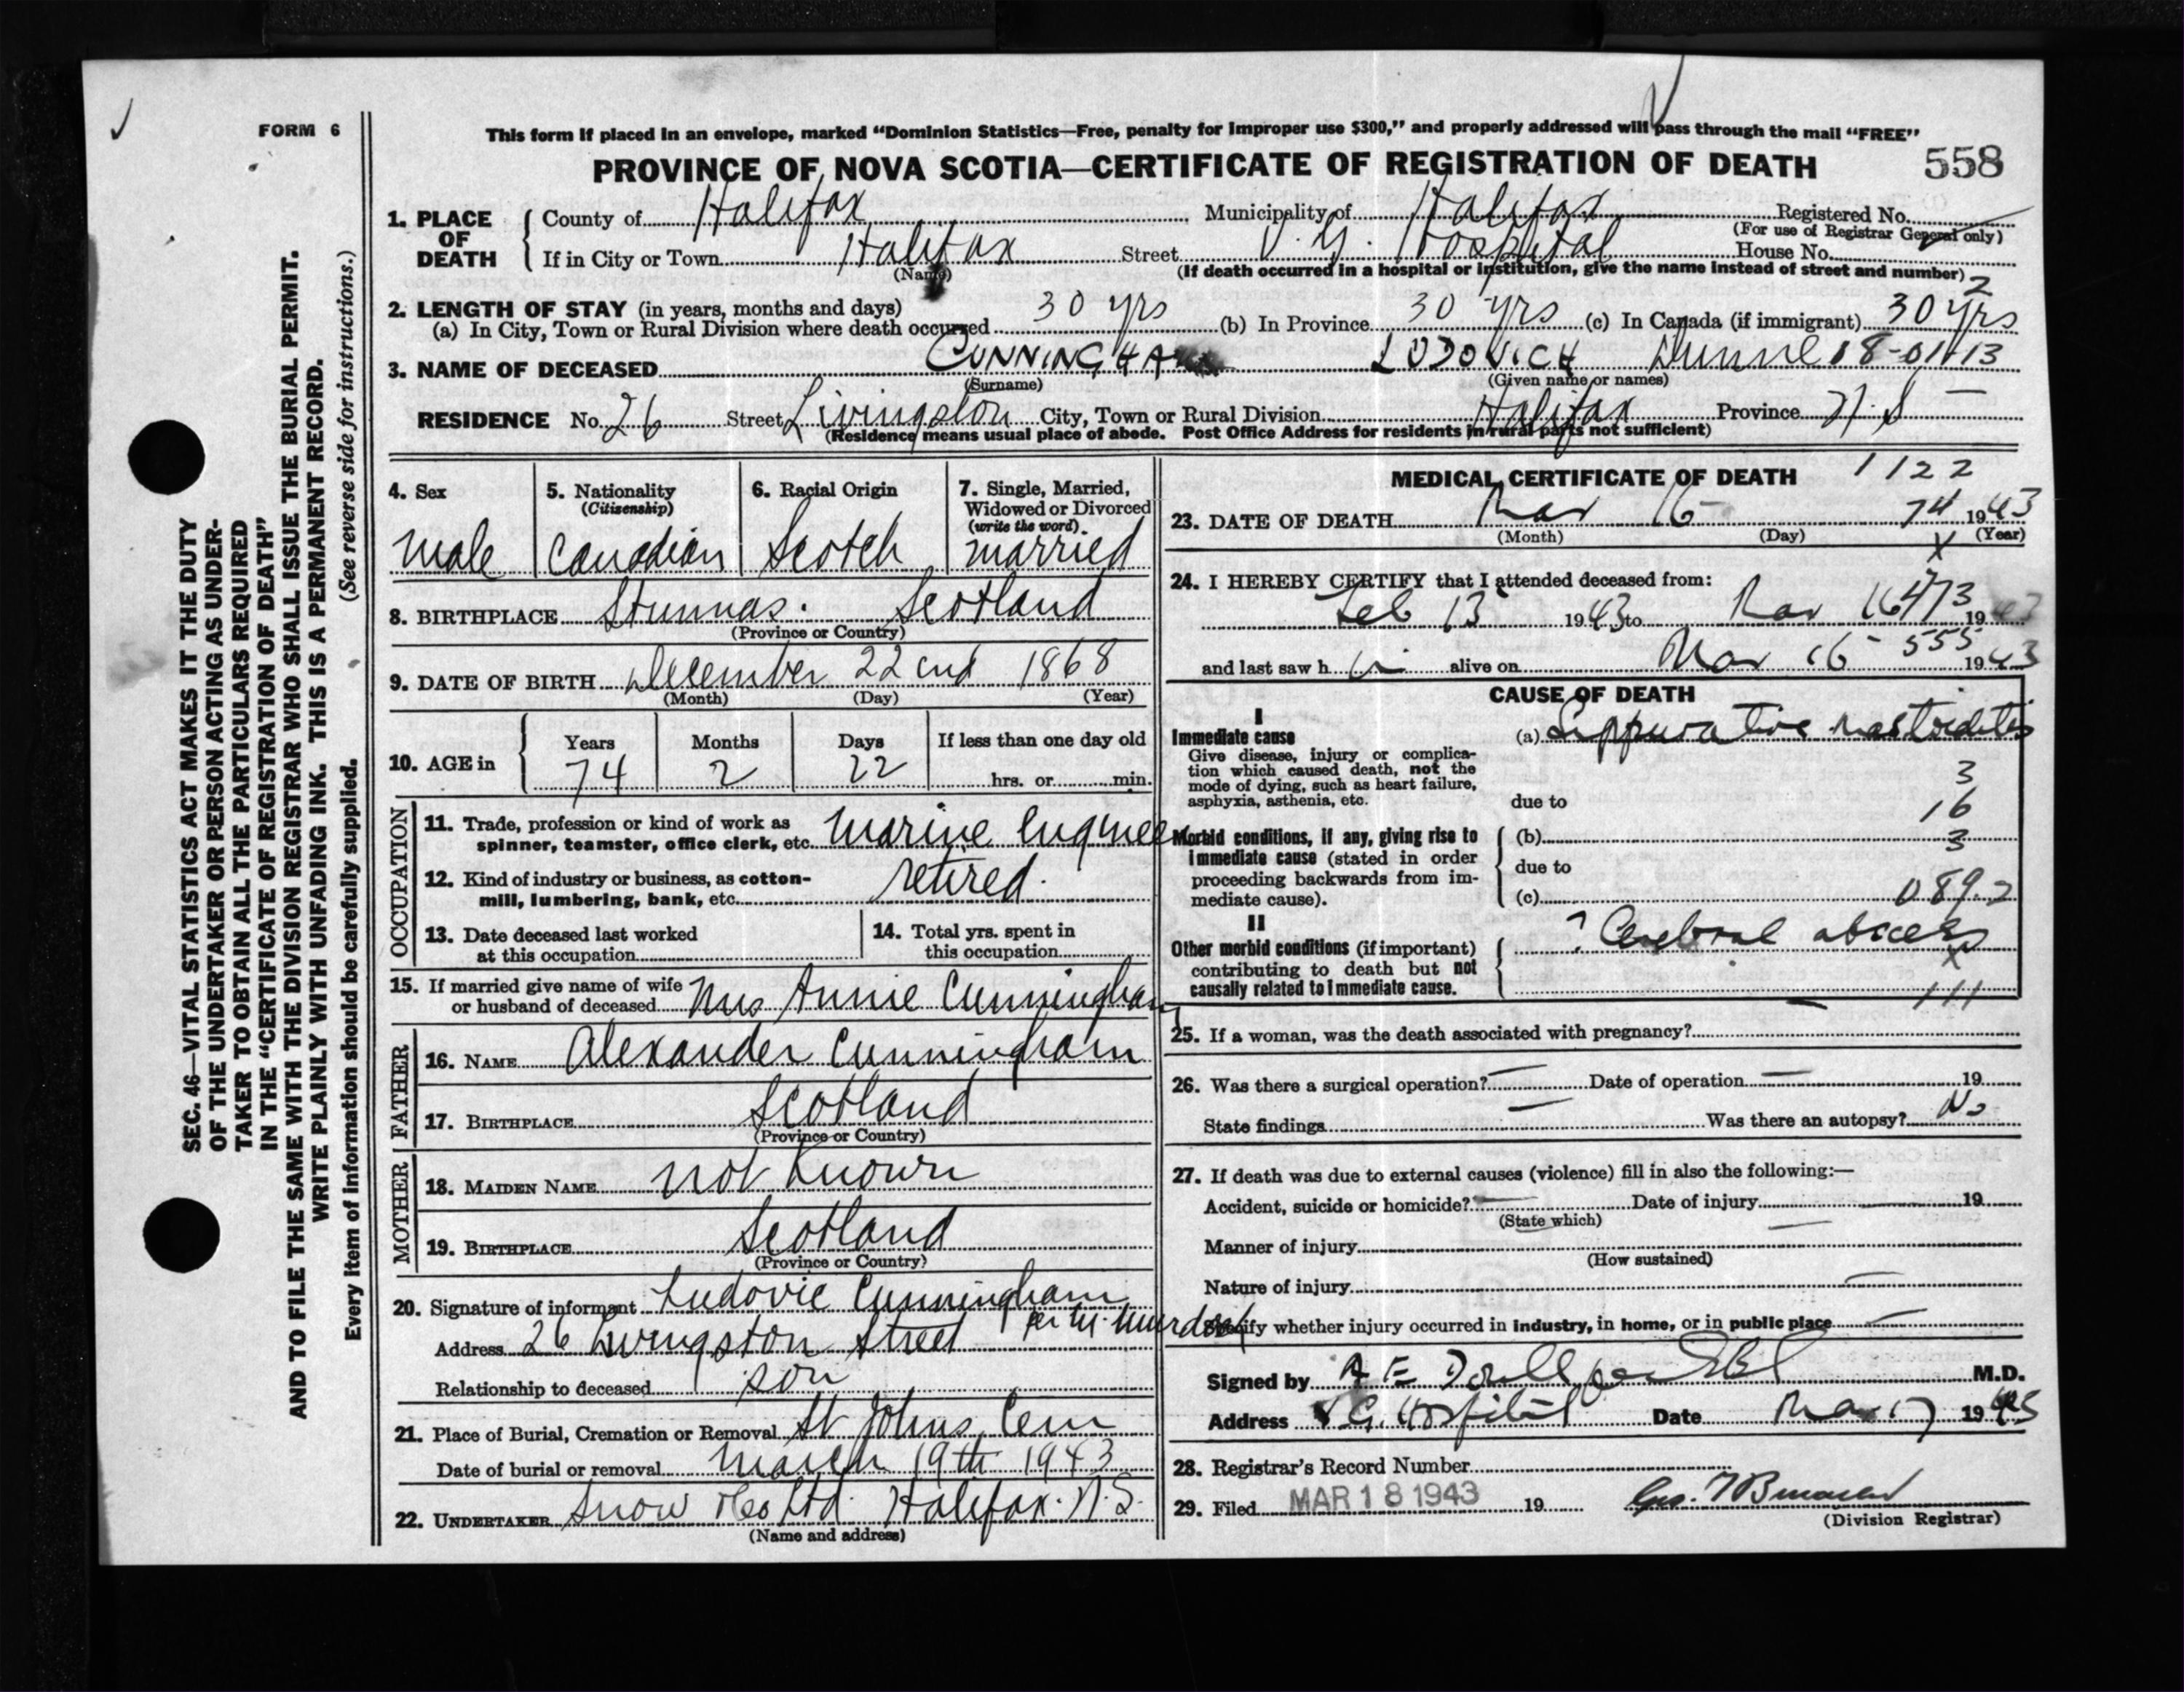 FORM 6
This form if placed in an envelope, marked “Dominion Statistics—Free, penalty for improper use $300,” and properly addressed will pass through the mail “FREE”
PROVINCE OF NOVA SCOTIA—CERTIFICATE OF REGISTRATION OF DEATH 558
1. PLACE OF DEATH { County of Halifax Municipality of Halifax Registered No.
(For use of Registrar General only)
If in City or Town Halifax Street V. G. Hospital House No.
(Name) (If death occurred in a hospital or institution, give the name instead of street and number)
2
2. LENGTH OF STAY (in years, months and days)
(a) In City, Town or Rural Division where death occurred 30 yrs (b) In Province 30 yrs (c) In Canada (if immigrant) 30 yrs
3. NAME OF DECEASED CUNNINGHAM LUDOVICH 08-01-13
(Surname) (Given name or names)
RESIDENCE No. 26 Street Livingston City, Town or Rural Division Halifax Province N.S —
(Residence means usual place of abode. Post Office Address for residents in rural parts not sufficient)
SEC. 46—VITAL STATISTICS ACT MAKES IT THE DUTY
OF THE UNDERTAKER OR PERSON ACTING AS UNDER-
TAKER TO OBTAIN ALL THE PARTICULARS REQUIRED
IN THE “CERTIFICATE OF REGISTRATION OF DEATH”
AND TO FILE THE SAME WITH THE DIVISION REGISTRAR WHO SHALL ISSUE THE BURIAL PERMIT.
WRITE PLAINLY WITH UNFADING INK. THIS IS A PERMANENT RECORD.
Every item of information should be carefully supplied. (See reverse side for instructions.)
4. Sex 5. Nationality 6. Racial Origin 7. Single, Married,
(Citizenship) Widowed or Divorced
(write the word)
Male Canadian Scotch married
8. BIRTHPLACE Scotland
(Province or Country)
9. DATE OF BIRTH December 22cnd 1868
(Month) (Day) (Year)
10. AGE in { Years Months Days If less than one day old
74 2 22 hrs. or min.
OCCUPATION
11. Trade, profession or kind of work as
spinner, teamster, office clerk, etc. Marine Engineer
12. Kind of industry or business, as cotton-
mill, lumbering, bank, etc. retired.
13. Date deceased last worked
at this occupation
14. Total yrs. spent in
this occupation
15. If married give name of wife
or husband of deceased Mrs Annie Cunningham
FATHER
16. NAME Alexander Cunningham
17. BIRTHPLACE Scotland
(Province or Country)
MOTHER
18. MAIDEN NAME not known
19. BIRTHPLACE Scotland
(Province or Country)
20. Signature of informant Ludovic Cunningham
per M. Murdoch
Address 26 Livingston Street
Relationship to deceased son
21. Place of Burial, Cremation or Removal St Johns Cem
Date of burial or removal March 19th 1943
22. UNDERTAKER Snow & Co Ltd. Halifax. N.S.
(Name and address)
MEDICAL CERTIFICATE OF DEATH 1122
23. DATE OF DEATH Mar 16 74 1943
(Month) (Day) (Year)
X
24. I HEREBY CERTIFY that I attended deceased from:
Feb 13 1943 to Mar 16 473 1943
555
and last saw h im alive on Mar 16 1943
CAUSE OF DEATH
I
Immediate cause (a) Suppurative mastoiditis
Give disease, injury or complica-
tion which caused death, not the
mode of dying, such as heart failure,
asphyxia, asthenia, etc. due to
3
16
3
Morbid conditions, if any, giving rise to (b)
immediate cause (stated in order due to
proceeding backwards from im-
mediate cause). (c) 089.2
II
Other morbid conditions (if important) ? Cerebral abscess
contributing to death but not X
causally related to immediate cause. 111
25. If a woman, was the death associated with pregnancy? —
26. Was there a surgical operation? — Date of operation — 19
State findings — Was there an autopsy? No
27. If death was due to external causes (violence) fill in also the following:—
Accident, suicide or homicide? — Date of injury — 19
(State which)
Manner of injury —
(How sustained)
Nature of injury —
Specify whether injury occurred in industry, in home, or in public place —
Signed by A E Doull M.D.
Address V G. Hospital Date Mar 17 1943
28. Registrar’s Record Number
29. Filed MAR 18 1943 19
(Division Registrar)